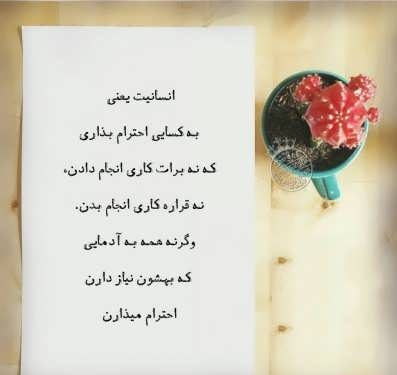 انسانیت یعنی
به کسایی احترام بذاری
که نه برات کاری انجام دادن،
نه قراره کاری انجام بدن.
وگرنه همه به آدمایی
که بهشون نیاز دارن
احترام میذارن